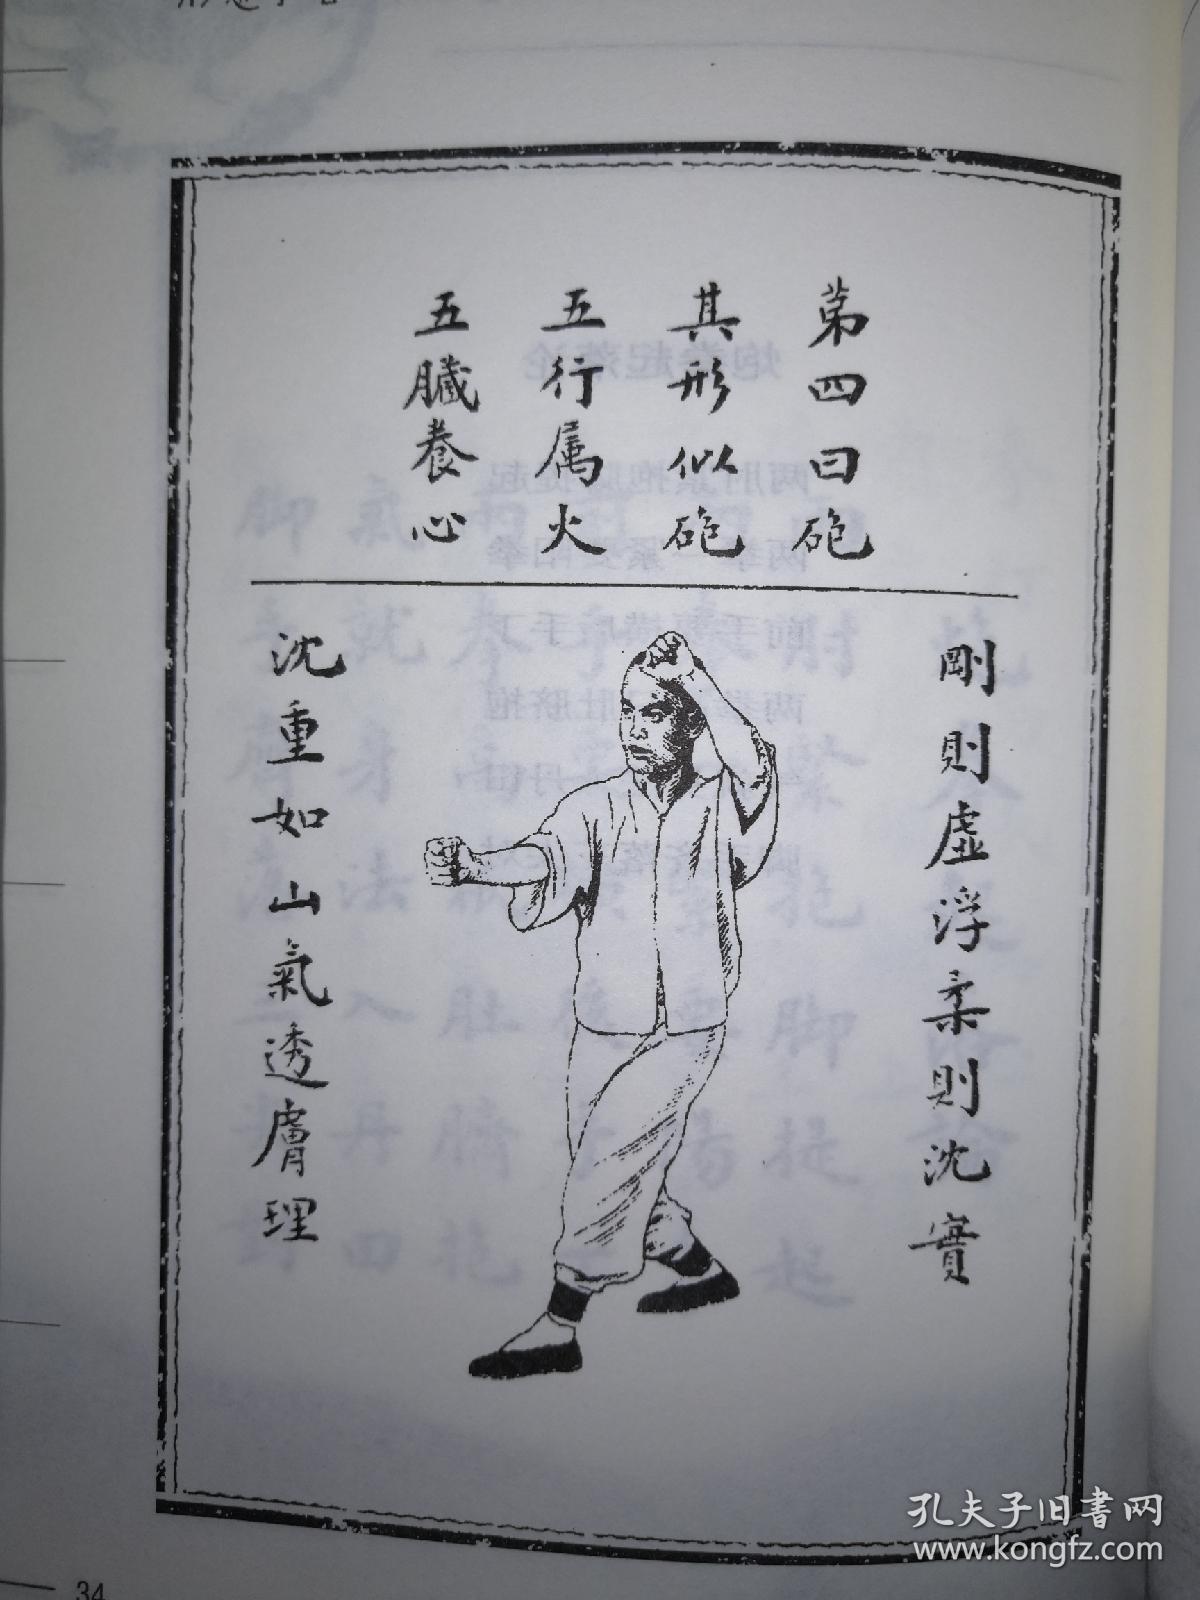 第四曰砲
其形似砲
五行属火
五臟養心
剛則虛浮柔則沈實
沈重如山氣透膚理
34
孔夫子旧書网
www.kongfz.com